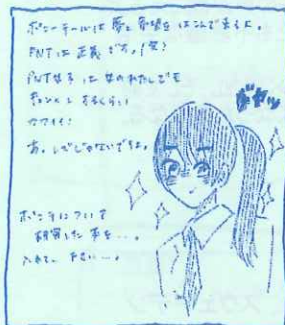 ポニーテールは夢と希望をはこんできるよ。
PNTは正義です。(笑)
PNT女子は女のわたしでも
キュンとするくらい
カワイイ!
あ、レズじゃないですよ。
ギャッ
ポニテについて
超語した事を…。
入れて、下さい…。